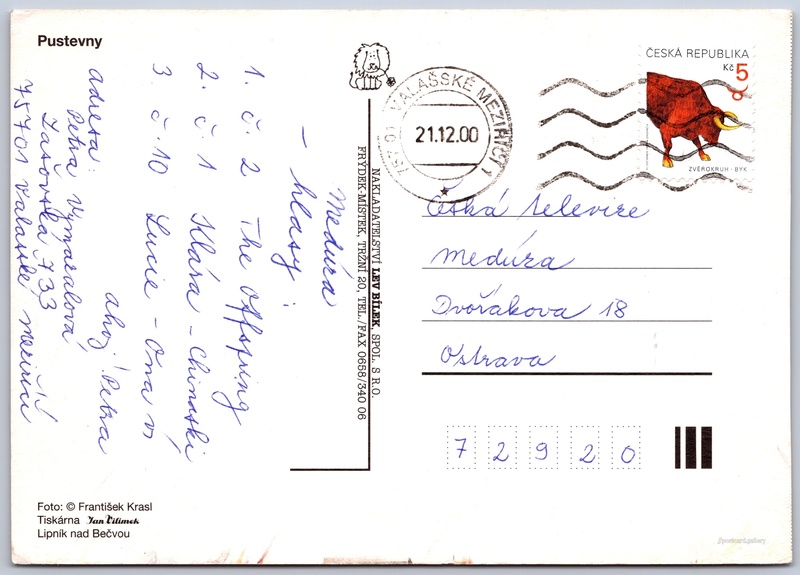 Pustevny
Medúza
- hlasy:
1. č. 2 The Offspring
2. č. 1 Klára - Chinaski
3. č. 10 Lucie - Ona ví
ahoj! Petra
adresa:
Petra Vymazalová
Zašovská 733
75701 Valašské Meziříčí
NAKLADATELSTVÍ LEV BÍLEK, SPOL. S R.O.
FRÝDEK-MÍSTEK, TRŽNÍ 20, TEL./FAX 0658/340 06
757 01 VALAŠSKÉ MEZIŘÍČÍ 1
21.12.00
ČESKÁ REPUBLIKA
Kč 5
ZVĚROKRUH · BÝK
Česká televize
Medúza
Dvořákova 18
Ostrava
72920
Foto: © František Krasl
Tiskárna Jan Vilímek
Lipník nad Bečvou